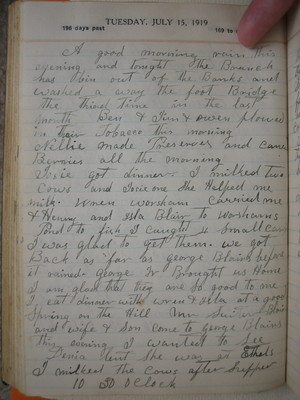 TUESDAY, JULY 15, 1919
166 days past
A good morning rain this
evening and tonight the Branch
has bin out of the Banks and
washed a way the foot Bridge
the third time in the last
month Ben & Jim & owen plowed
in their Tobacco this morning
Nellie made Preserves and
Berries all the morning
Josie got dinner I milked two
Cows and Josie one She Helped me
milk. Wren worham Carried me
& Henny and Ila Blair to worhams
Pond to fish I caught 4 Small
I was glad to get them. we got
Back as far as george Blairs before
it rained george W Brought us Home
I am glad that they are so good to me
I eat dinner with wren & Ila at a good
Spring on the Hill
and wife & Son come to george Blains
this evening I wanted to See
Lenia sent She was at Ethels
I milked the Cows after Supper
10 O Clock